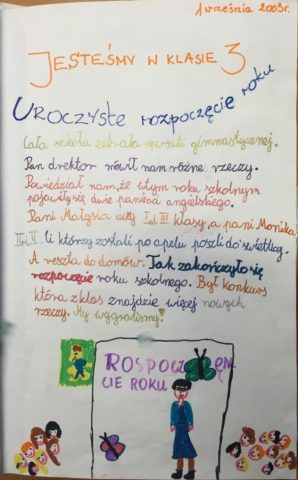 1 września 2003r.
JESTEŚMY W KLASIE 3
UROCZYSTE rozpoczęcie roku
Cała szkoła zebrała się w sali gimnastycznej.
Pan drektor mówił nam różne rzeczy.
Powiedział nam, że w tym roku szkolnym
pojawiły się dwie pania od angielskiego.
Pani Małgsia uczy I i III klasy, a pani Monika
II i IV. Ci którzy zostali po apelu poszli do świetlicy.
A reszta do domów. Tak zakończyło się
rozpoczęcie roku szkolnego. Był konkurs
która z klas znajdzie więcej nowych
rzeczy. My wygraliśmy!
ROSPOCZĘN
CIE ROKU